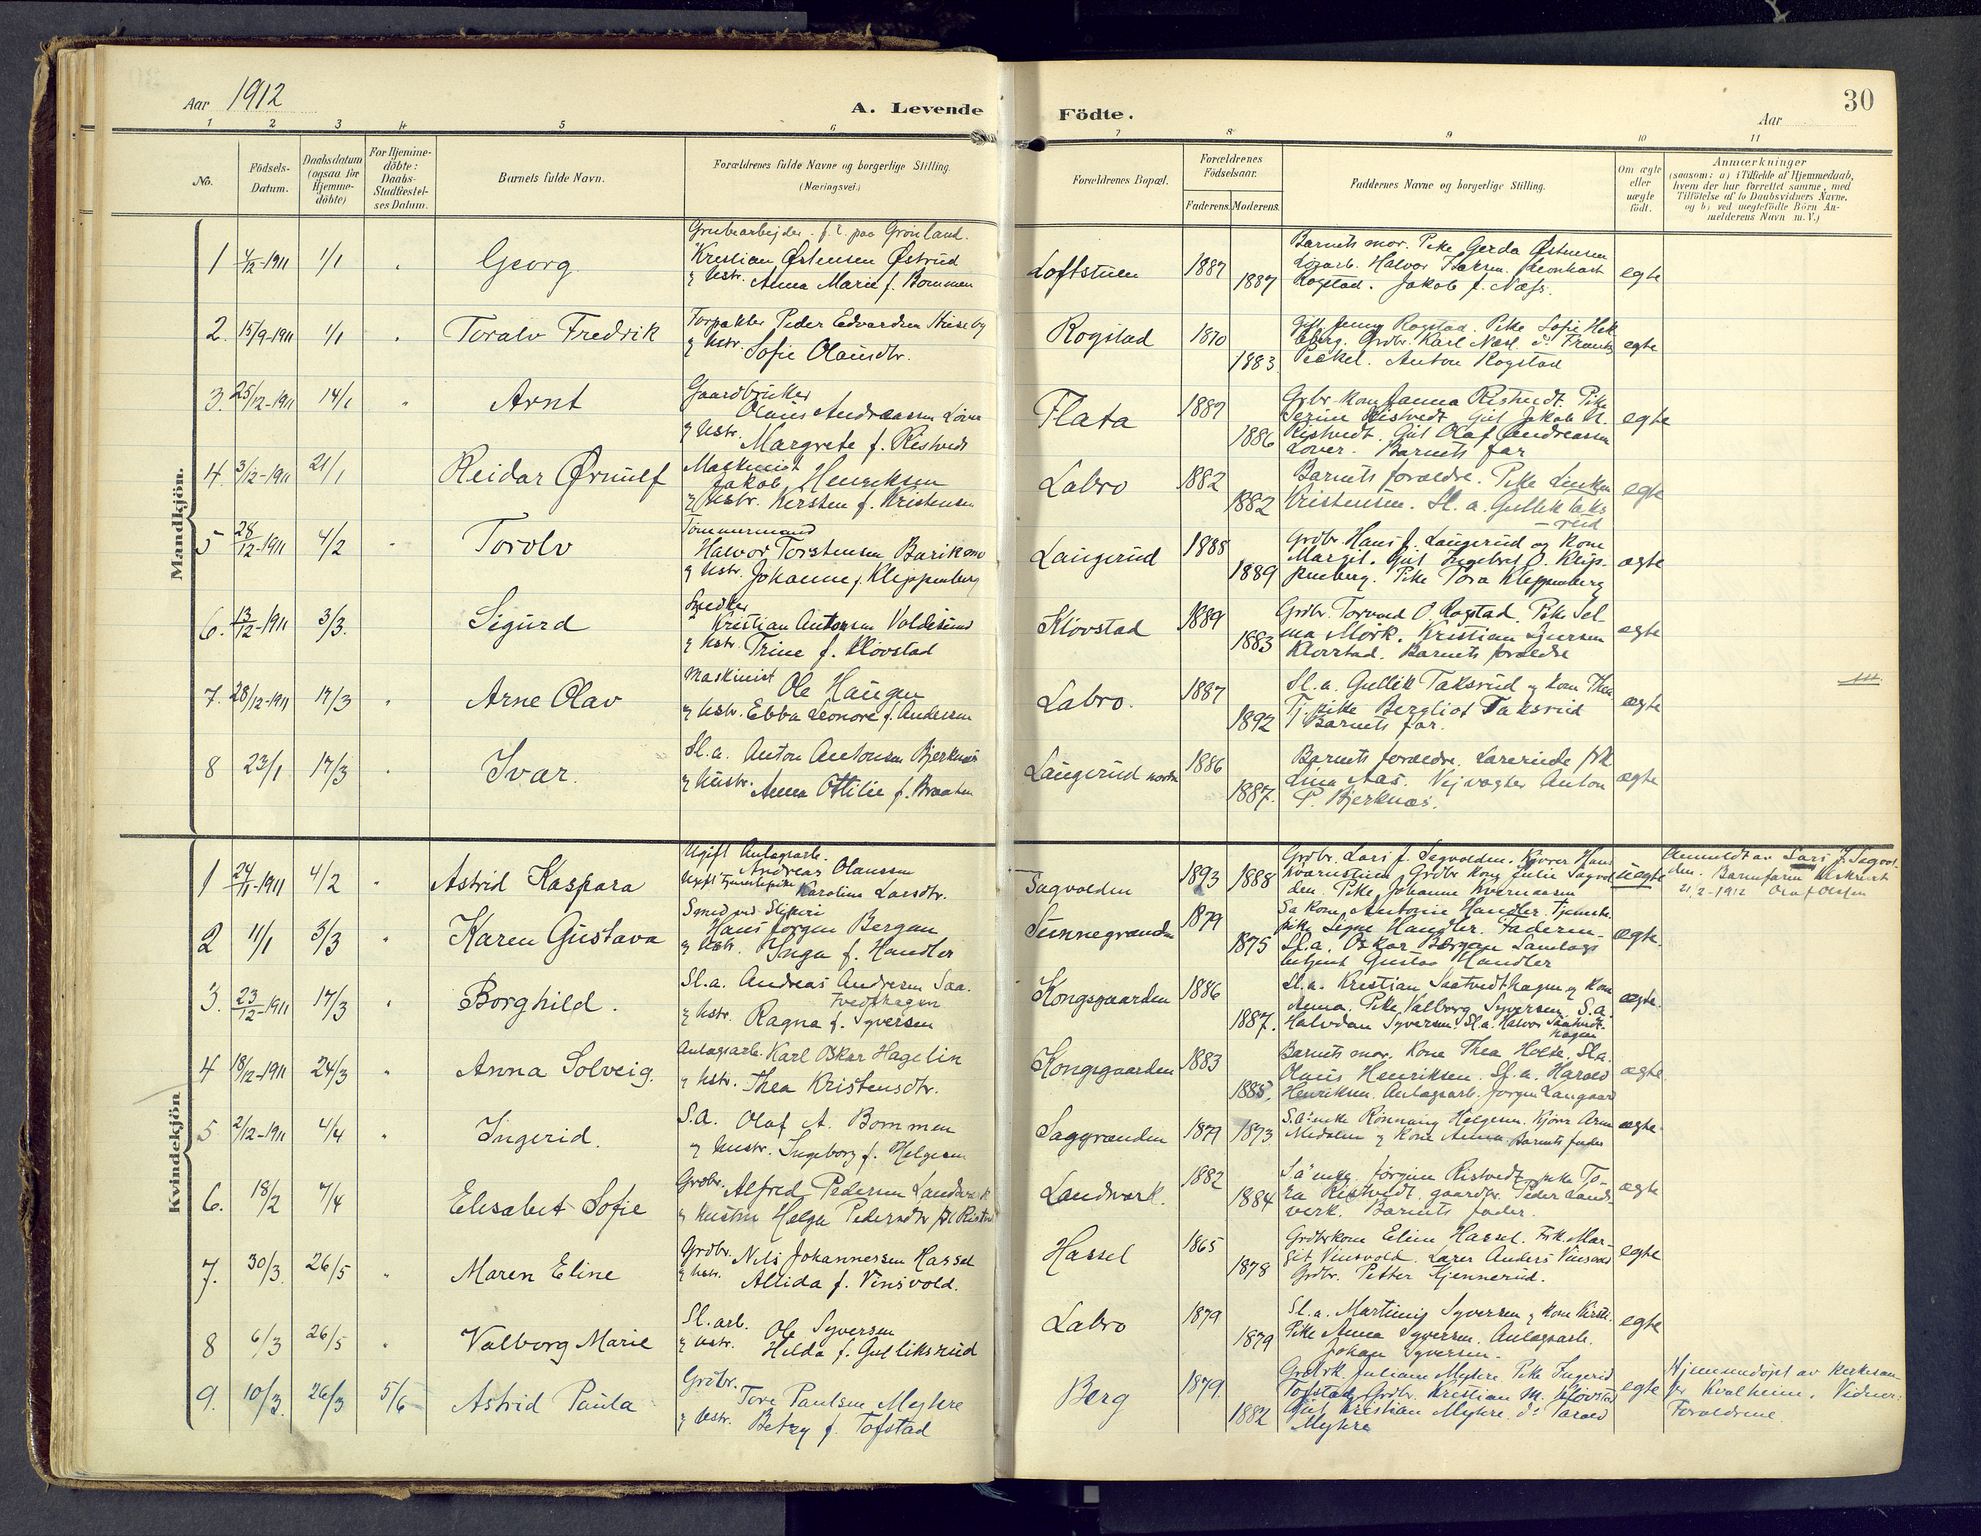 Aar 1912
A. Levende
Födte.
30
Aar
1 2 3 4 5 6 7 8 9 10 11
No.
Födsels-Datum.
Daabsdatum (ogsaa for Hjemme-döbte)
For Hjemme-döbte: Daabs-Stadfestel-ses Datum.
Barnets fulde Navn.
Forældrenes fulde Navne og borgerlige Stilling. (Næringsvei.)
Forældrenes Bopæl.
Forældrenes Födselsaar.
Faderens. Moderens.
Faddernes Navne og borgerlige Stilling.
Om ægte eller uægte födt.
Anmærkninger
(saasom: a) i Tilfælde af Hjemmedaab, hvem der har forrettet samme, med Tilföielse af to Daabsvidners Navne, og b) ved uægtefödte Börn An-melderens Navn m. V.)
Mandkjön.
1 4/12-1911 1/1 Georg
Grubearbejder
paa Grönland.
Kristian Østensen Østrud
Hstr. Anna Marie f. Bommen
Loftstuen 1887 1887
Barnets mor. Pike Gerda Østensen
Halvor
Rogstad. Jakob f. Næss.
egte
2. 15/9-1911 1/1 Toralv Fredrik
Peder Edvardsen
Hstr. Sofie Olausdtr.
Rogstad 1870 1883
Jenny Rogstad. Pike Sofie Hek
Grdbr. Karl
Anton Rogstad
egte
3. 25/12-1911 14/1 Arnt
Gaardbruker
Olaus Andreassen
Hstr. Margrete f. Ristvedt
Flata 1887 1886
Grbr. kone Hanna Ristvedt. Pike
Ristvedt. Gut Jakob
Ristvedt. Gut Olaf Andreassen
Barnets far
egte
4. 3/12-1911 21/1 Reidar Ørnulf
Maskinist
Jakob Henriksen
Hstr. Kirsten f. Kristensen
Labro 1882 1882
Barnets forældre. Pike
Kristensen. Sl. a. Gullik Taks
rud
egte
5 28/12-1911 4/2 Torolv
Tömmermand
Halvor Torstensen
Hstr. Johanne f. Kleppenberg
Laugerud 1888 1889
Grdbr. Hans J. Laugerud og kone
Margit. Gut Ingebret O. Klep-
penberg. Pike Tora Kleppenberg
ægte
6. 13/12-1911 3/3. Sigurd
Snedker
Kristian Antonsen Valdesund
Hstr. Trine f. Klovstad
Klovstad 1889 1883
Grdbr. Torvald O. Rogstad. Pike Sel
ma Mørk. Kristian
Klovstad. Barnets forældre
egte
7. 28/12-1911 17/3 Arne Olav
Maskinist Ole Haugen
Hstr. Ebba Leonore f. Andersen
Labro. 1887 1892
Sl. a. Gullik Taksrud og kone Thea
pike Bergliot Taksrud
Barnets far.
ægte
8 23/1 17/3 Ivar.
Sl. a. Anton Antonsen Bjerknæs
Hustr. Anna Ottilie f. Braaten
Laugerud nordre 1886 1887.
Barnets forældre. Lærerinde frk
Aas. Vejvogter Anton
P. Bjerknæs.
ægte
Kvindekjön
1 24/11-1911 4/2 Astrid Kaspara
Ugift Anlægsarb. Andreas Olaussen
Ugift Tjenestepike Karoline Larsdtr.
Sagvolden 1893 1888
Grdbr. Lars J. Sagvolden. Kjörer Hans
Kvernstuen, Grdbr kone Julie Sagvol
den. Pike Johanne Kvernaasen
uægte
Anmeldt av Lars J. Sagvol
den. Barnefaren
21/2-1912 Olaf Olsen
2 11/1 3/3 Karen Gustava
Smed ved Sliperi
Hans Jörgen Bergan
Hstr. Inga f. Handler
Tunnegranden 1879 1875
Sa kone Antonie Handler. Tjeneste
pike Signe Handler. Faderen.
Sl. a. Oskar Bergan Samlags
betjent Gustav Handler
ægte.
3. 23/12-1911 17/3 Borghild.
Sl. a. Andreas Andresen Saa-
tvedthagen
Hstr. Ragna f. Syversen
Kongsgaarden 1886 1887.
Sl. a. Kristian Saatvedthagen og kone
Anna. Pike Valborg Syversen. S. a.
Halvdan Syversen. Sl. a. Halvor Saatvedt-
hagen
ægte.
4 18/12-1911 24/3 Anna Solveig.
Anlægsarb. Karl Oskar Hagelin
Hstr. Thea Kristensdtr.
Kongsgaarden 1883 1885.
Barnets mor. Kone Thea Holte. Sl. a.
Olaus Henriksen. Sl. a. Harald
Henriksen. Anlægsarb. Jörgen Langaard
ægte.
5 2/12-1911 4/4 Ingerid.
S. A. Olaf A. Bommen
Hustr. Ingeborg f. Helgesen
Saggranden 1879 1873
S. a. enke Rønnaug Helgesen. Kjörer Arne
Medalen og kone Anna. Barnets fader
ægte.
6. 18/2 7/4 Elisabet Sofie
Grdbr. Alfred Pedersen Landsverk
Hustru Helga Pedersdtr
Landsverk. 1882 1884
Jørgine Ristvedt, pike To-
ra Ristvedt. gaardbr. Peder Lands
verk. Barnets fader.
ægte
7. 30/3. 26/5 Maren Eline
Grdbr. Nils Johannessen Hassel
Hstr. Alida f. Vinsvold.
Hassel 1865 1878
Grdbrkone Eline Hassel. Frk. Mar-
git Vinsvold. Lærer Anders Vinsvold
Grdbr. Petter Hjennerud.
egte
8 6/3 26/5 Valborg Marie
Sl. arb. Ole Syversen
Hstr. Hilda f. Gulliksrud
Labro 1879 1879
Sl. a. Martinius Syversen og kone Kirsti.
Pike Anna Syversen. Anlægsarb.
Johan Syversen.
egte
9. 10/3. 26/3 5/6 Astrid Paula
Grdbr. Tore Paulsen Myhre
Hstr. Betzy f. Tofstad
Berg 1879. 1882
Juliane Myhre. Pike Ingerid
Tofstad, Grdbr. Kristian M. Klovstad
Gut Kristian Myhre. do Torald
Myhre
egte
Hjemmedøpt av kirkesan-
ger Kvalheim. Vidner:
Forældrene.